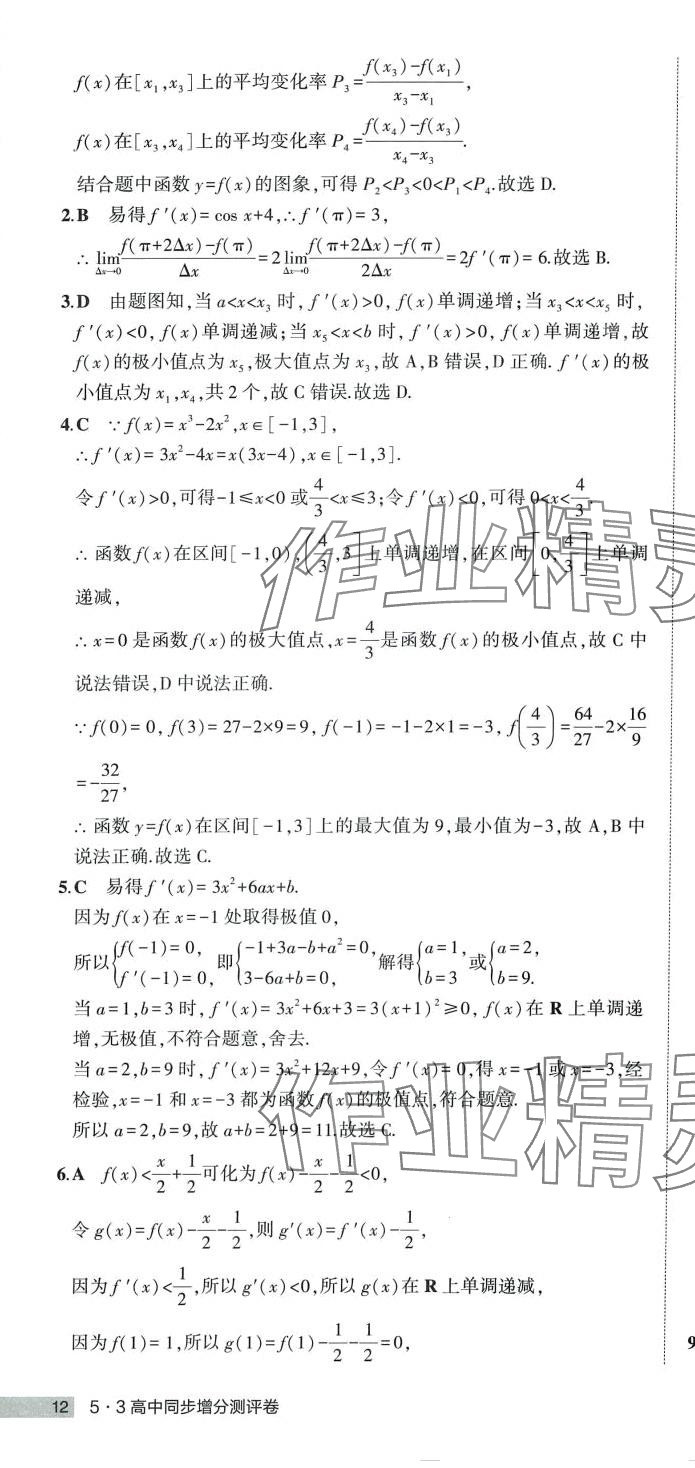 f(x)在[x₁,x₃]上的平均变化率 P₃=\frac{f(x₃)-f(x₁)}{x₃-x₁},
f(x)在[x₃,x₄]上的平均变化率 P₄=\frac{f(x₄)-f(x₃)}{x₄-x₃}.
结合题中函数 y=f(x)的图象,可得 P₂<P₃<0<P₁<P₄.故选 D.
2.B 易得 f′(x)=cos x+4,∴f′(π)=3,
∴\lim_{Δx→0}\frac{f(π+2Δx)-f(π)}{Δx}=2\lim_{Δx→0}\frac{f(π+2Δx)-f(π)}{2Δx}=2f′(π)=6.故选 B.
3.D 由题图知,当 a<x<x₃ 时,f′(x)>0,f(x)单调递增;当 x₃<x<x₅ 时,
f′(x)<0,f(x)单调递减;当 x₅<x<b 时,f′(x)>0,f(x)单调递增,故
f(x)的极小值点为 x₅,极大值点为 x₃,故 A,B 错误,D 正确.f′(x)的极
小值点为 x₁,x₄,共 2 个,故 C 错误.故选 D.
4.C ∵f(x)=x³-2x²,x∈[-1,3],
∴f′(x)=3x²-4x=x(3x-4),x∈[-1,3].
令 f′(x)>0,可得-1≤x<0 或\frac{4}{3}<x≤3;令 f′(x)<0,可得 0<x<\frac{4}{3}.
∴函数 f(x)在区间[-1,0),(\frac{4}{3},3]上单调递增,在区间[0,\frac{4}{3}]上单调
递减,
∴x=0 是函数 f(x)的极大值点,x=\frac{4}{3}是函数 f(x)的极小值点,故 C 中
说法错误,D 中说法正确.
∵f(0)=0,f(3)=27-2×9=9,f(-1)=-1-2×1=-3,f(\frac{4}{3})=\frac{64}{27}-2×\frac{16}{9}
=-\frac{32}{27},
∴函数 y=f(x)在区间[-1,3]上的最大值为 9,最小值为-3,故 A,B 中
说法正确.故选 C.
5.C 易得 f′(x)=3x²+6ax+b.
因为 f(x)在 x=-1 处取得极值 0,
所以{f(-1)=0, f′(-1)=0,即{-1+3a-b+a²=0, 3-6a+b=0,解得{a=1, b=3 或{a=2, b=9.
当 a=1,b=3 时,f′(x)=3x²+6x+3=3(x+1)²≥0,f(x)在 R 上单调递
增,无极值,不符合题意,舍去.
当 a=2,b=9 时,f′(x)=3x²+12x+9,令 f′(x)=0,得 x=-1 或 x=-3,经
检验,x=-1 和 x=-3 都为函数 f(x)的极值点,符合题意.
所以 a=2,b=9,故 a+b=2+9=11.故选 C.
6.A f(x)<\frac{x}{2}+\frac{1}{2}可化为 f(x)-\frac{x}{2}-\frac{1}{2}<0,
令 g(x)=f(x)-\frac{x}{2}-\frac{1}{2},则 g′(x)=f′(x)-\frac{1}{2},
因为 f′(x)<\frac{1}{2},所以 g′(x)<0,所以 g(x)在 R 上单调递减,
因为 f(1)=1,所以 g(1)=f(1)-\frac{1}{2}-\frac{1}{2}=0,
9
12 5·3 高中同步增分测评卷
作业精灵
作业精灵